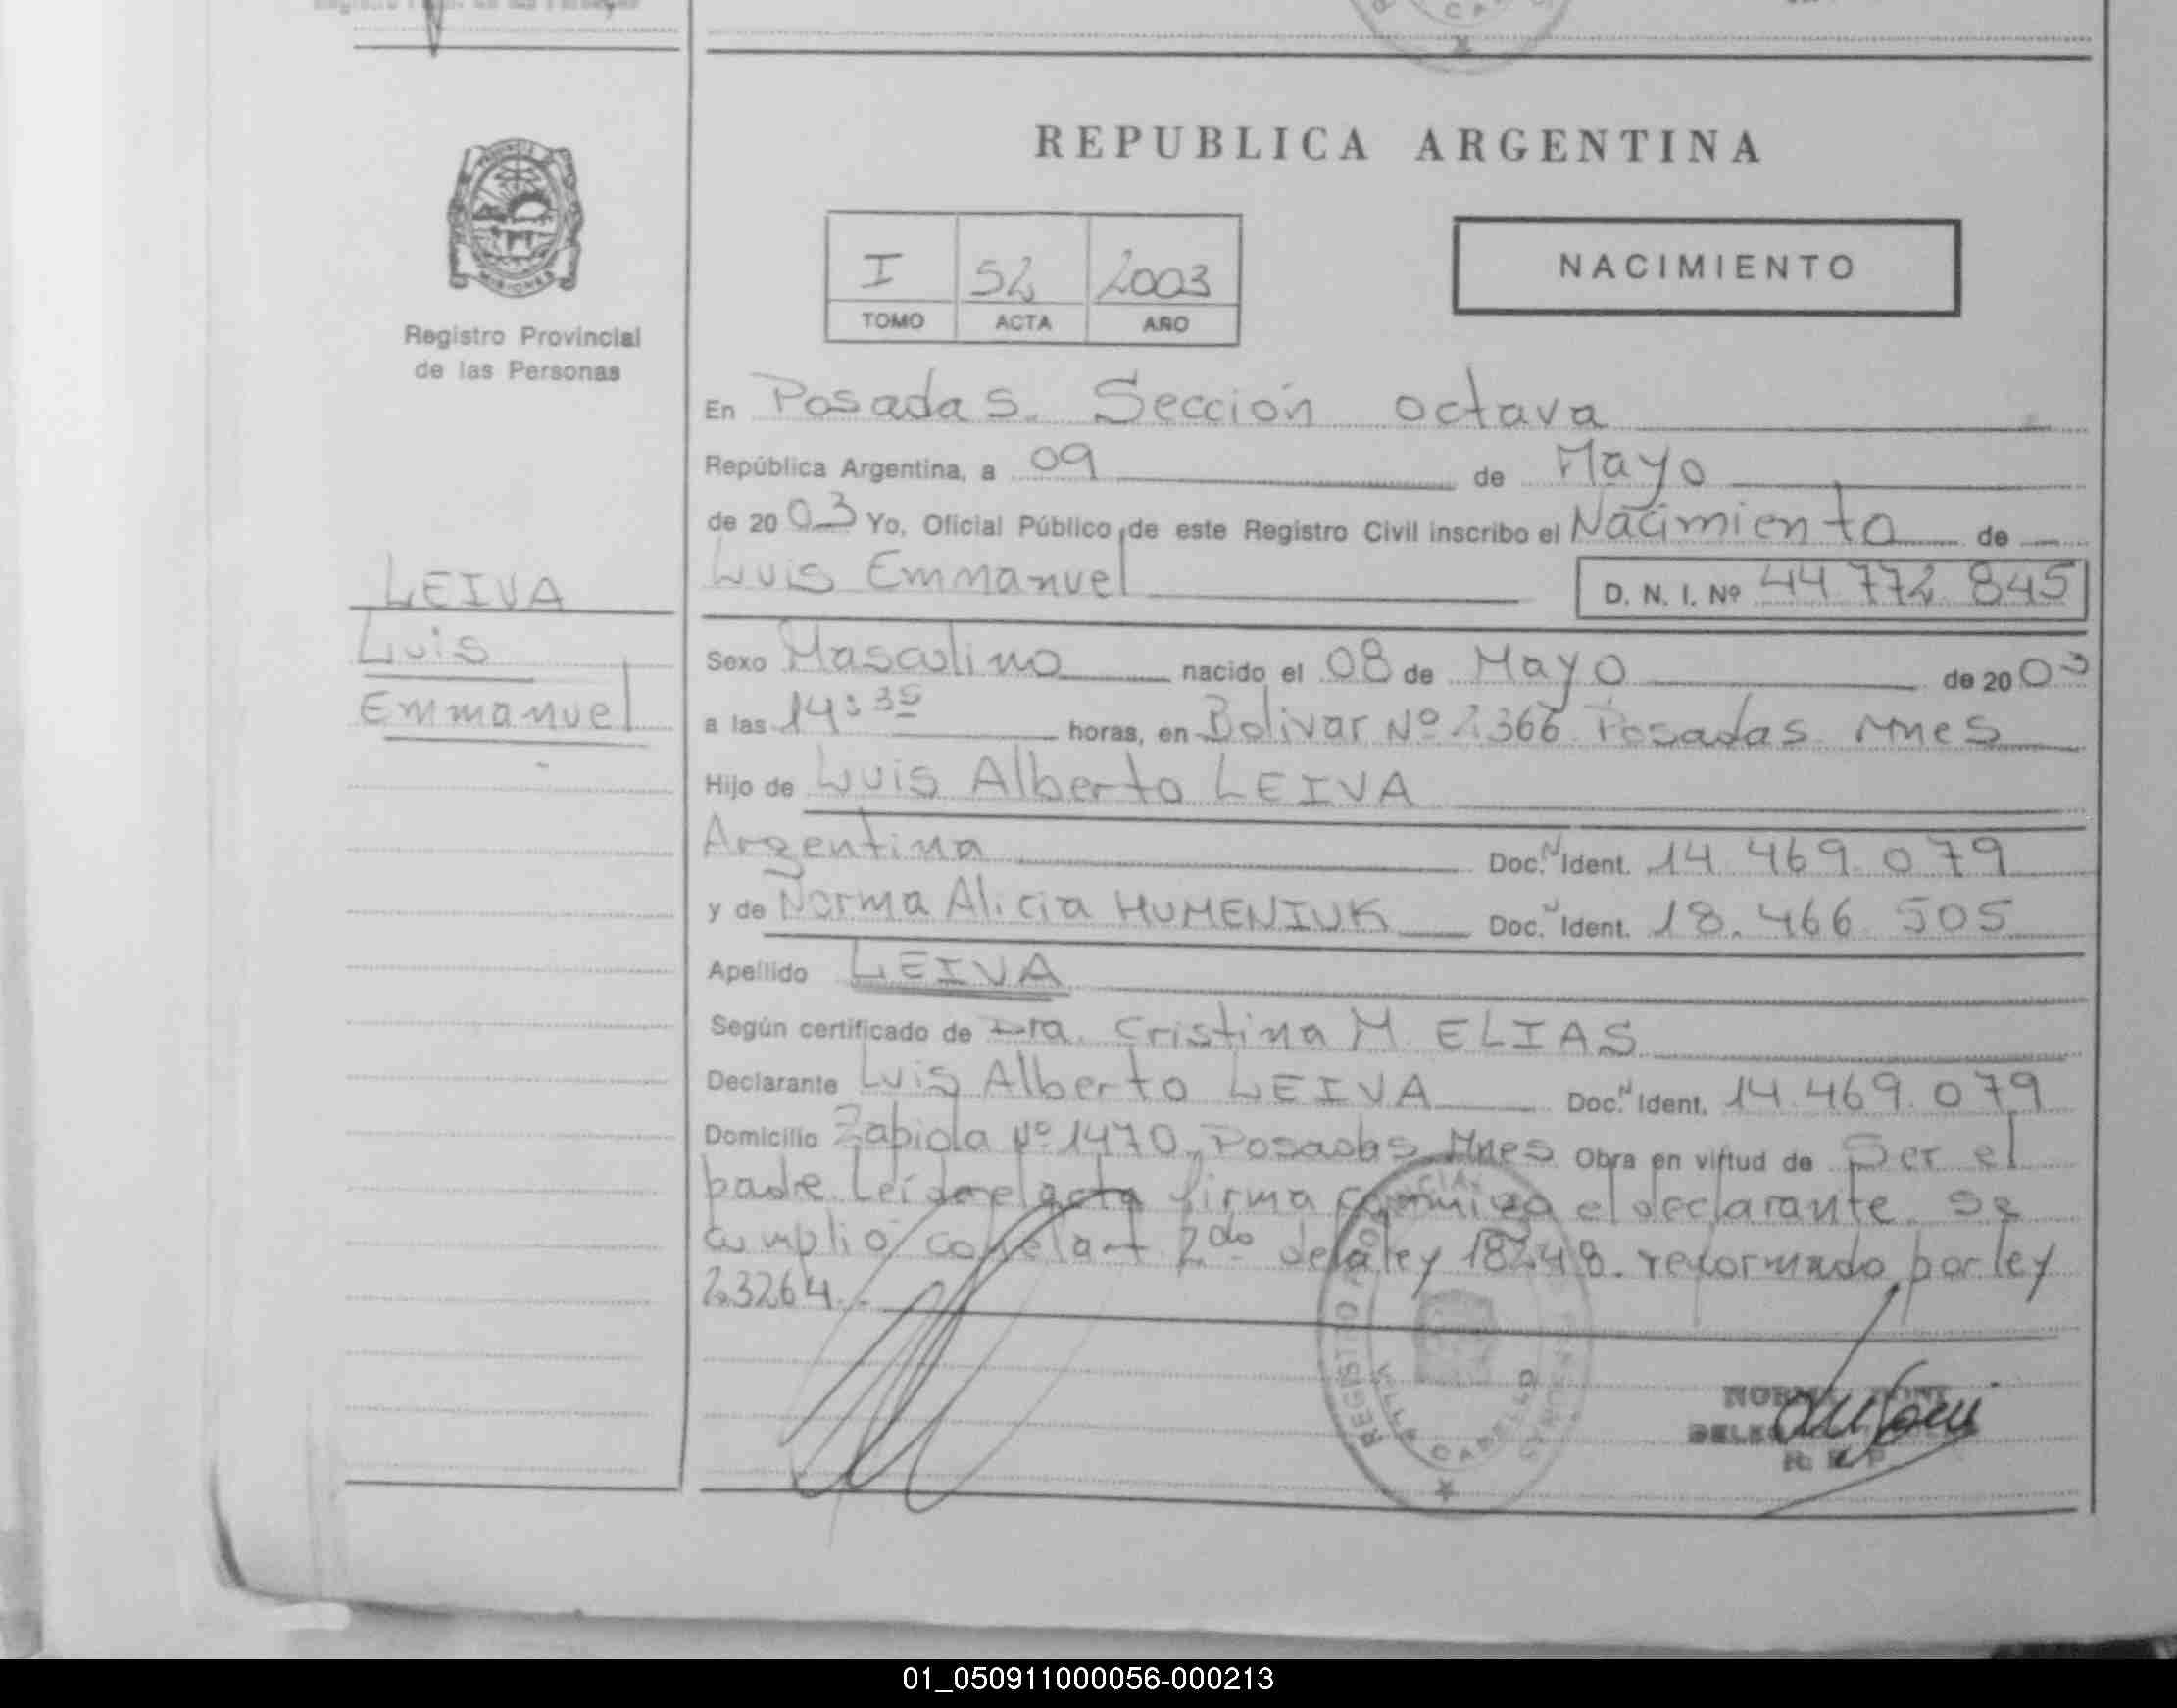 REPUBLICA ARGENTINA
PROVINCIA DE
MISIONES
Registro Provincial
de las Personas
I 52 2003
TOMO ACTA AÑO
NACIMIENTO
En Posadas. Sección octava
República Argentina, a 09 de Mayo
de 2003 Yo, Oficial Público de este Registro Civil inscribo el Nacimiento de
Luis Emmanuel D. N. I. Nº 44 772 845
LEIVA
Luis
Emmanuel
Sexo Masculino nacido el 08 de Mayo de 2003
a las 14:35 horas, en Bolivar Nº 2366 Posadas Mnes
Hijo de Luis Alberto LEIVA
Argentina Doc. N Ident. 14 469 079
y de Norma Alicia HUMENIUK Doc. N Ident. 18. 466 505
Apellido LEIVA
Según certificado de Dra. Cristina M ELIAS
Declarante Luis Alberto LEIVA Doc. N Ident. 14.469.079
Domicilio Zapiola Nº 1470, Posadas Mnes Obra en virtud de Ser el
padre. Leída el acta firma conmigo el declarante. Se
cumplió con el art 2do de la ley 18248. reformado por ley
23264.-
REGISTRO
VILLA CABELLO
NORMA
R. P.
01_050911000056-000213